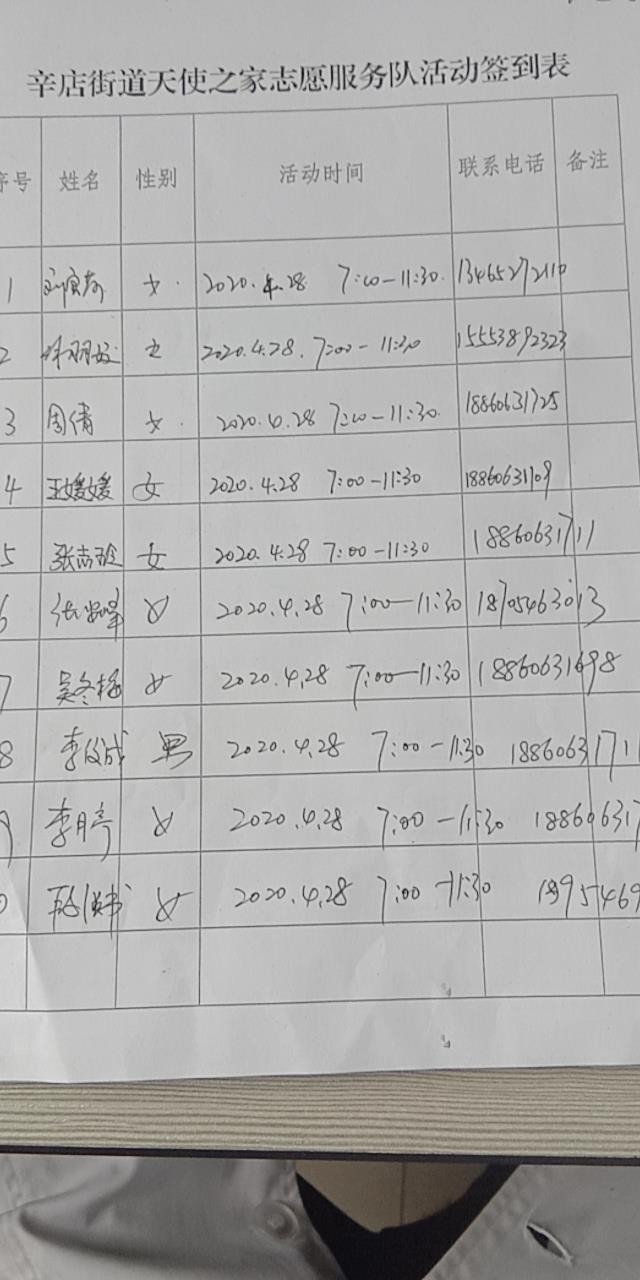 辛店街道天使之家志愿服务队活动签到表
序号 姓名 性别 活动时间 联系电话 备注
1 女 2020.4.28 7:00-11:30 13465272110
2 女 2020.4.28. 7:00-11:30 15553892323
3 周倩 女 2020.4.28 7:00-11:30 18860631725
4 王媛媛 女 2020.4.28 7:00-11:30 18860631709
5 张志玲 女 2020.4.28 7:00-11:30 18860631711
6 女 2020.4.28 7:00-11:30 18705463013
7 吴冬梅 女 2020.4.28 7:00-11:30 18860631698
8 李俊成 男 2020.4.28 7:00-11:30 1886063171
9 李月亭 女 2020.4.28 7:00-11:30 188606317
0 女 2020.4.28 7:00-11:30 1895469